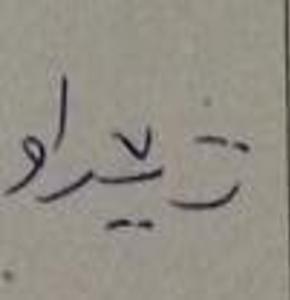 تێراو